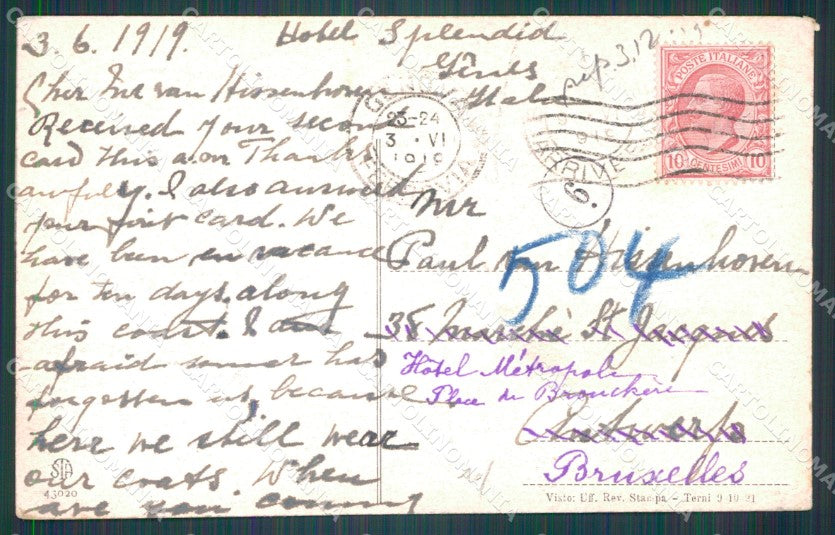 3.6.1919. Hotel Splendid
Gênes
Italy
Cher Mr van Hissenhoven
Received your second
card this a.m. Thanks
awfully. I also answered
your first card. We
have been en vacance
for ten days along
this coast. I am
afraid summer has
forgotten us, because
here we still wear
our coats. When
are you coming
rép. 3.12.
POSTE ITALIANE
10 CENTESIMI 10
23-24
3 . VI
1919
ARRIVÉ
6.
Mr
Paul van Hissenhoven
504
35 Marché St Jacques
Hôtel Métropole
Place de Brouckère
Antwerp
Bruxelles
STA
43020
Visto: Uff. Rev. Stampa - Terni 9-10-21
CARTOLINOMANIA